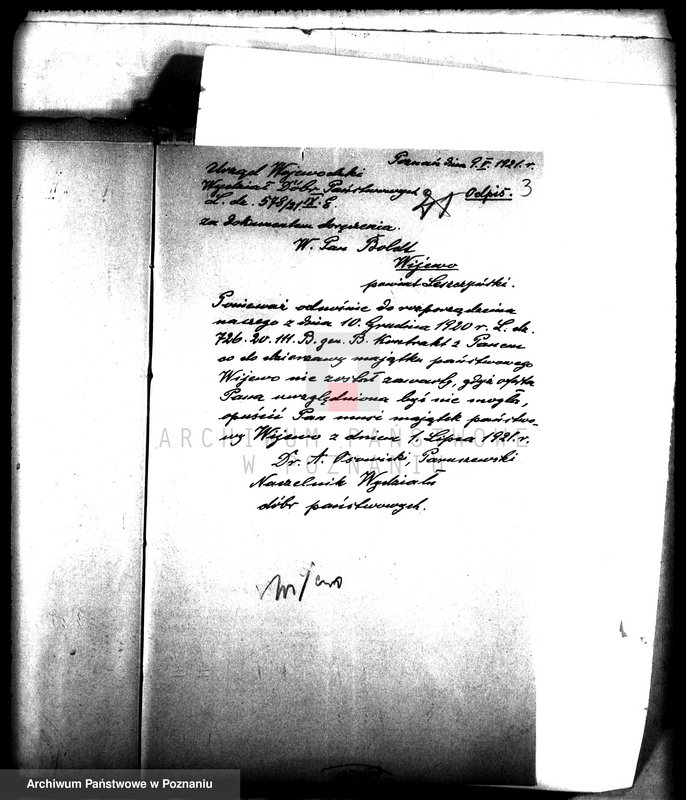 Poznań dnia 9.V.1921.r.
Urząd Wojewódzki
Wydział Dóbr Państwowych
Odpis. 3
L. dz. 578/21 IX E.
za dokumentem doręczenia.
W. Pan Boldt
Wijewo
powiat Leszczyński.
Ponieważ odnośnie do rozporządzenia
naszego z dnia 10. Grudnia 1920 r. L. dz.
726.20.III.B. gen. B. Kontrakt z Panem
co do dzierżawy majątku państwowego
Wijewo nie został zawarty, gdyż oferta
Pana uwzględniona być nie mogła,
opuścić Pan musi majątek państwo-
wy Wijewo z dniem 1. Lipca 1921.r.
Dr. A. Osowicki, Paruszewski
Naczelnik Wydziału
dóbr państwowych.
Wijewo
ARCHIWUM PAŃSTWOWE
W POZNANIU
Archiwum Państwowe w Poznaniu